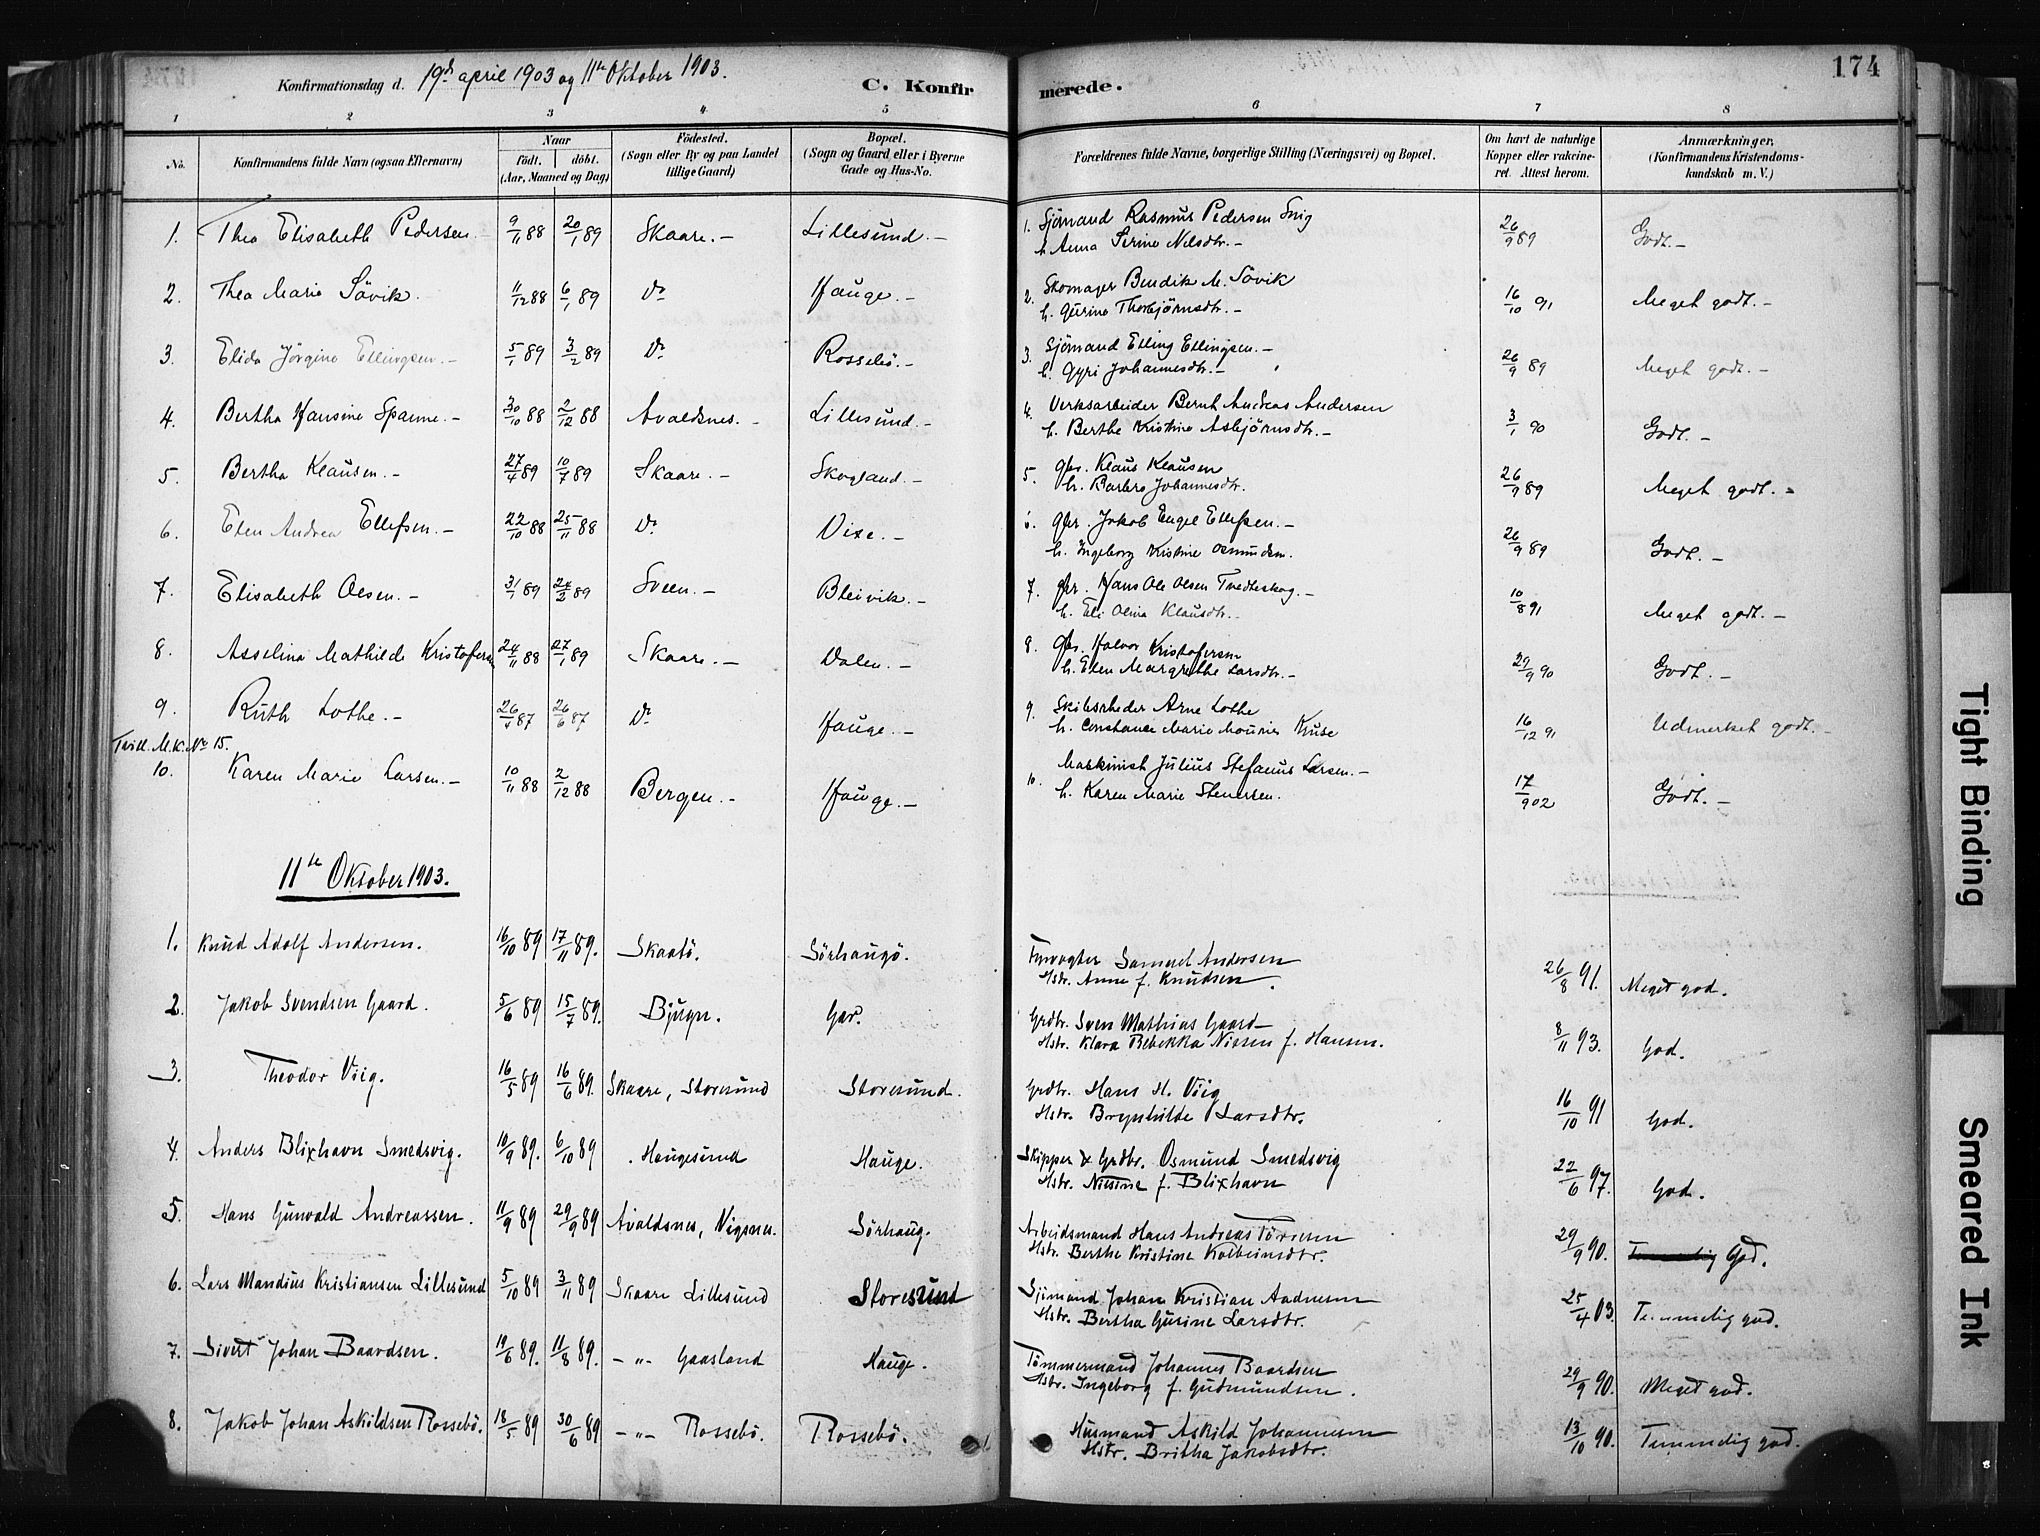 Konfirmationsdag d. 19de april 1903 og 11te Oktober 1903.
C. Konfir merede. 174
1 2 3 4 5 6 7 8
No. Konfirmandens fulde Navn (ogsaa Efternavn) Naar født. døbt. (Aar, Maaned og Dag) Födested. (Sogn eller By og paa Landet tillige Gaard) Bopæl. (Sogn og Gaard eller i Byerne Gade og Hus-No. Forældrenes fulde Navne, borgerlige Stilling (Næringsvei) og Bopæl. Om havt de naturlige Kopper eller vakcineret. Attest herom. Anmærkninger. (Konfirmandens Kristendomskundskab m. V.)
1. Thea Elisabeth Pedersen. 9/11 88 20/1 89 Skaare. Lillesund. 1. Sjömand Rasmus Pedersen
h. Anna Serine Nilsdtr. 26/9 89 Godt.
2. Thea Marie Sövik. 11/12 88 6/1 89 Do Hauge. 2. Skomager Bendik M. Sövik
h. Gurine Thorbjörnsdtr. 16/10 91 Meget godt.
3. Elida Jörgine Ellingsen. 5/1 89 3/2 89 Do Rossebö. 3. Sjömand Elling Ellingsen.
h. Gyri Johannesdtr. 26/9 89 Meget godt.
4. Bertha Hansine Spanne. 30/10 88 2/12 88 Avaldsnes. Lillesund. 4. Verksarbeider Bernt Andreas Andersen
h. Berthe Kristine Asbjörnsdtr. 3/1 90 Godt.
5. Bertha Klausen. 27/4 89 10/7 89 Skaare. Skogland. 5. Gbr. Klaus Klausen
h. Barbro Johannesdtr. 26/9 89 Meget godt.
6. Elen Andrea Ellefsen. 22/10 88 25/11 88 Do Vixe. 6. Gbr. Jakob Engel Ellefsen.
h. Ingeborg Kristine Osmundsen. 26/9 89 Godt.
7. Elisabeth Olsen. 31/1 89 24/2 89 Sveen. Bleivik. 7. Gbr. Hans Ole Olsen Tvedteskog.
h. Eli Olina Klausdtr. 10/8 91 Meget godt.
8. Asselina Mathilde Kristofersen 24/11 88 27/1 89 Skaare. Dalen. 8. Gbr. Halvor Kristofersen
h. Elen Margrethe Larsdtr. 29/9 90 Godt.
9. Ruth Lothe. 26/4 87 26/6 87 Do Hauge. 9. Skibsrheder Arne Lothe
h. Constance Marie Kruse 16/12 91 Udmerket godt.
Tvill. M.K. No 15.
10. Karen Marie Larsen. 10/11 88 2/12 88 Bergen. Hauge. 10. Maskinist Julius Stefanus Larsen.
h. Karen Marie Stenersen. 17/9 02 Godt.
11te Oktober 1903.
1. Knud Adolf Andersen. 16/10 89 17/11 89. Skaatö. Sörhaugö. Fyrvogter Samuel Andersen
Hstr. Anne f. Knudsen. 26/8 91. Meget god.
2. Jakob Svendsen Gaard. 5/6 89 15/7 89. Bjugn. Gar. Grdbr. Sven Mathias Gaard
Hstr. Klara Bebekka Nissen f. Hansen. 8/11 93. God.
3. Theodor Viig. 16/5 89 16/6 89. Skaare, Storesund Storesund. Grdbr. Hans H. Viig
Hstr. Brynhilde Larsdtr. 16/10 91 God.
4. Anders Blixhavn Smedsvig. 10/9 89. 6/10 89 Haugesund Hauge. Skipper & Grdbr. Osmund Smedsvig
Hstr. Nilsine f. Blixhavn 22/6 97. God.
5. Hans Gunvald Andreassen. 11/9 89 29/9 89 Avaldsnes, Vigsnes. Sörhaug. Arbeidsmand Hans Andreas Törresen
Hstr. Berthe Kristine Kolbeinsdtr. 29/9 90. God.
6. Lars Mandius Kristiansen Lillesund 5/10 89 3/11 89 Skaare Lillesund Storesund Sjömand Johan Kristian Aadnesen
Hstr. Bertha Gurine Larsdtr. 25/4 03. Temmelig god.
7. Sivert Johan Baardsen. 19/6 89. 11/8 89. -"- Gaasland Hauge. Tömmermand Johannes Baardsen
Hstr. Ingeborg f. Gudmundsen. 29/9 90. Meget god.
8. Jakob Johan Askildsen Rossebö. 18/5 89 30/6 89 -"- Rossebö. Rossebö. Husmand Askild Johannesen
Hstr. Britha Jakobsdtr. 13/10 90. Temmelig god.
Tight Binding
Smeared Ink